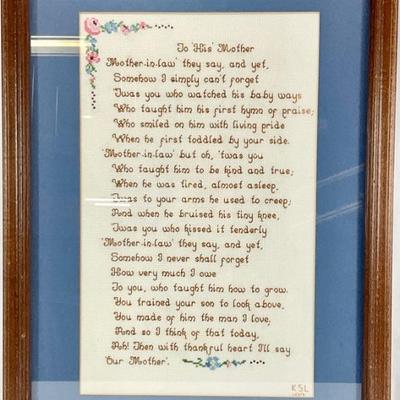 To 'His' Mother
'Mother-in-law' they say, and yet,
Somehow I simply can't forget
'Twas you who watched his baby ways
Who taught him his first hymn of praise;
Who smiled on him with living pride
When he first toddled by your side.
'Mother-in-law' but oh, 'twas you
Who taught him to be kind and true;
When he was tired, almost asleep,
'Twas to your arms he used to creep;
And when he bruised his tiny knee,
'Twas you who kissed it tenderly
'Mother-in-law' they say, and yet,
Somehow I never shall forget
How very much I owe
To you, who taught him how to grow.
You trained your son to look above,
You made of him the man I love;
And so I think of that today,
Ah! Then with thankful heart I'll say
'Our Mother'.
KSL